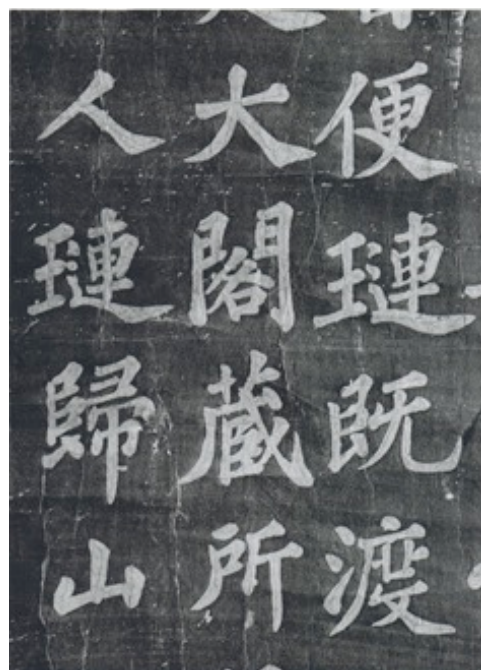 便璉既渡
大閣藏所
人璉歸山